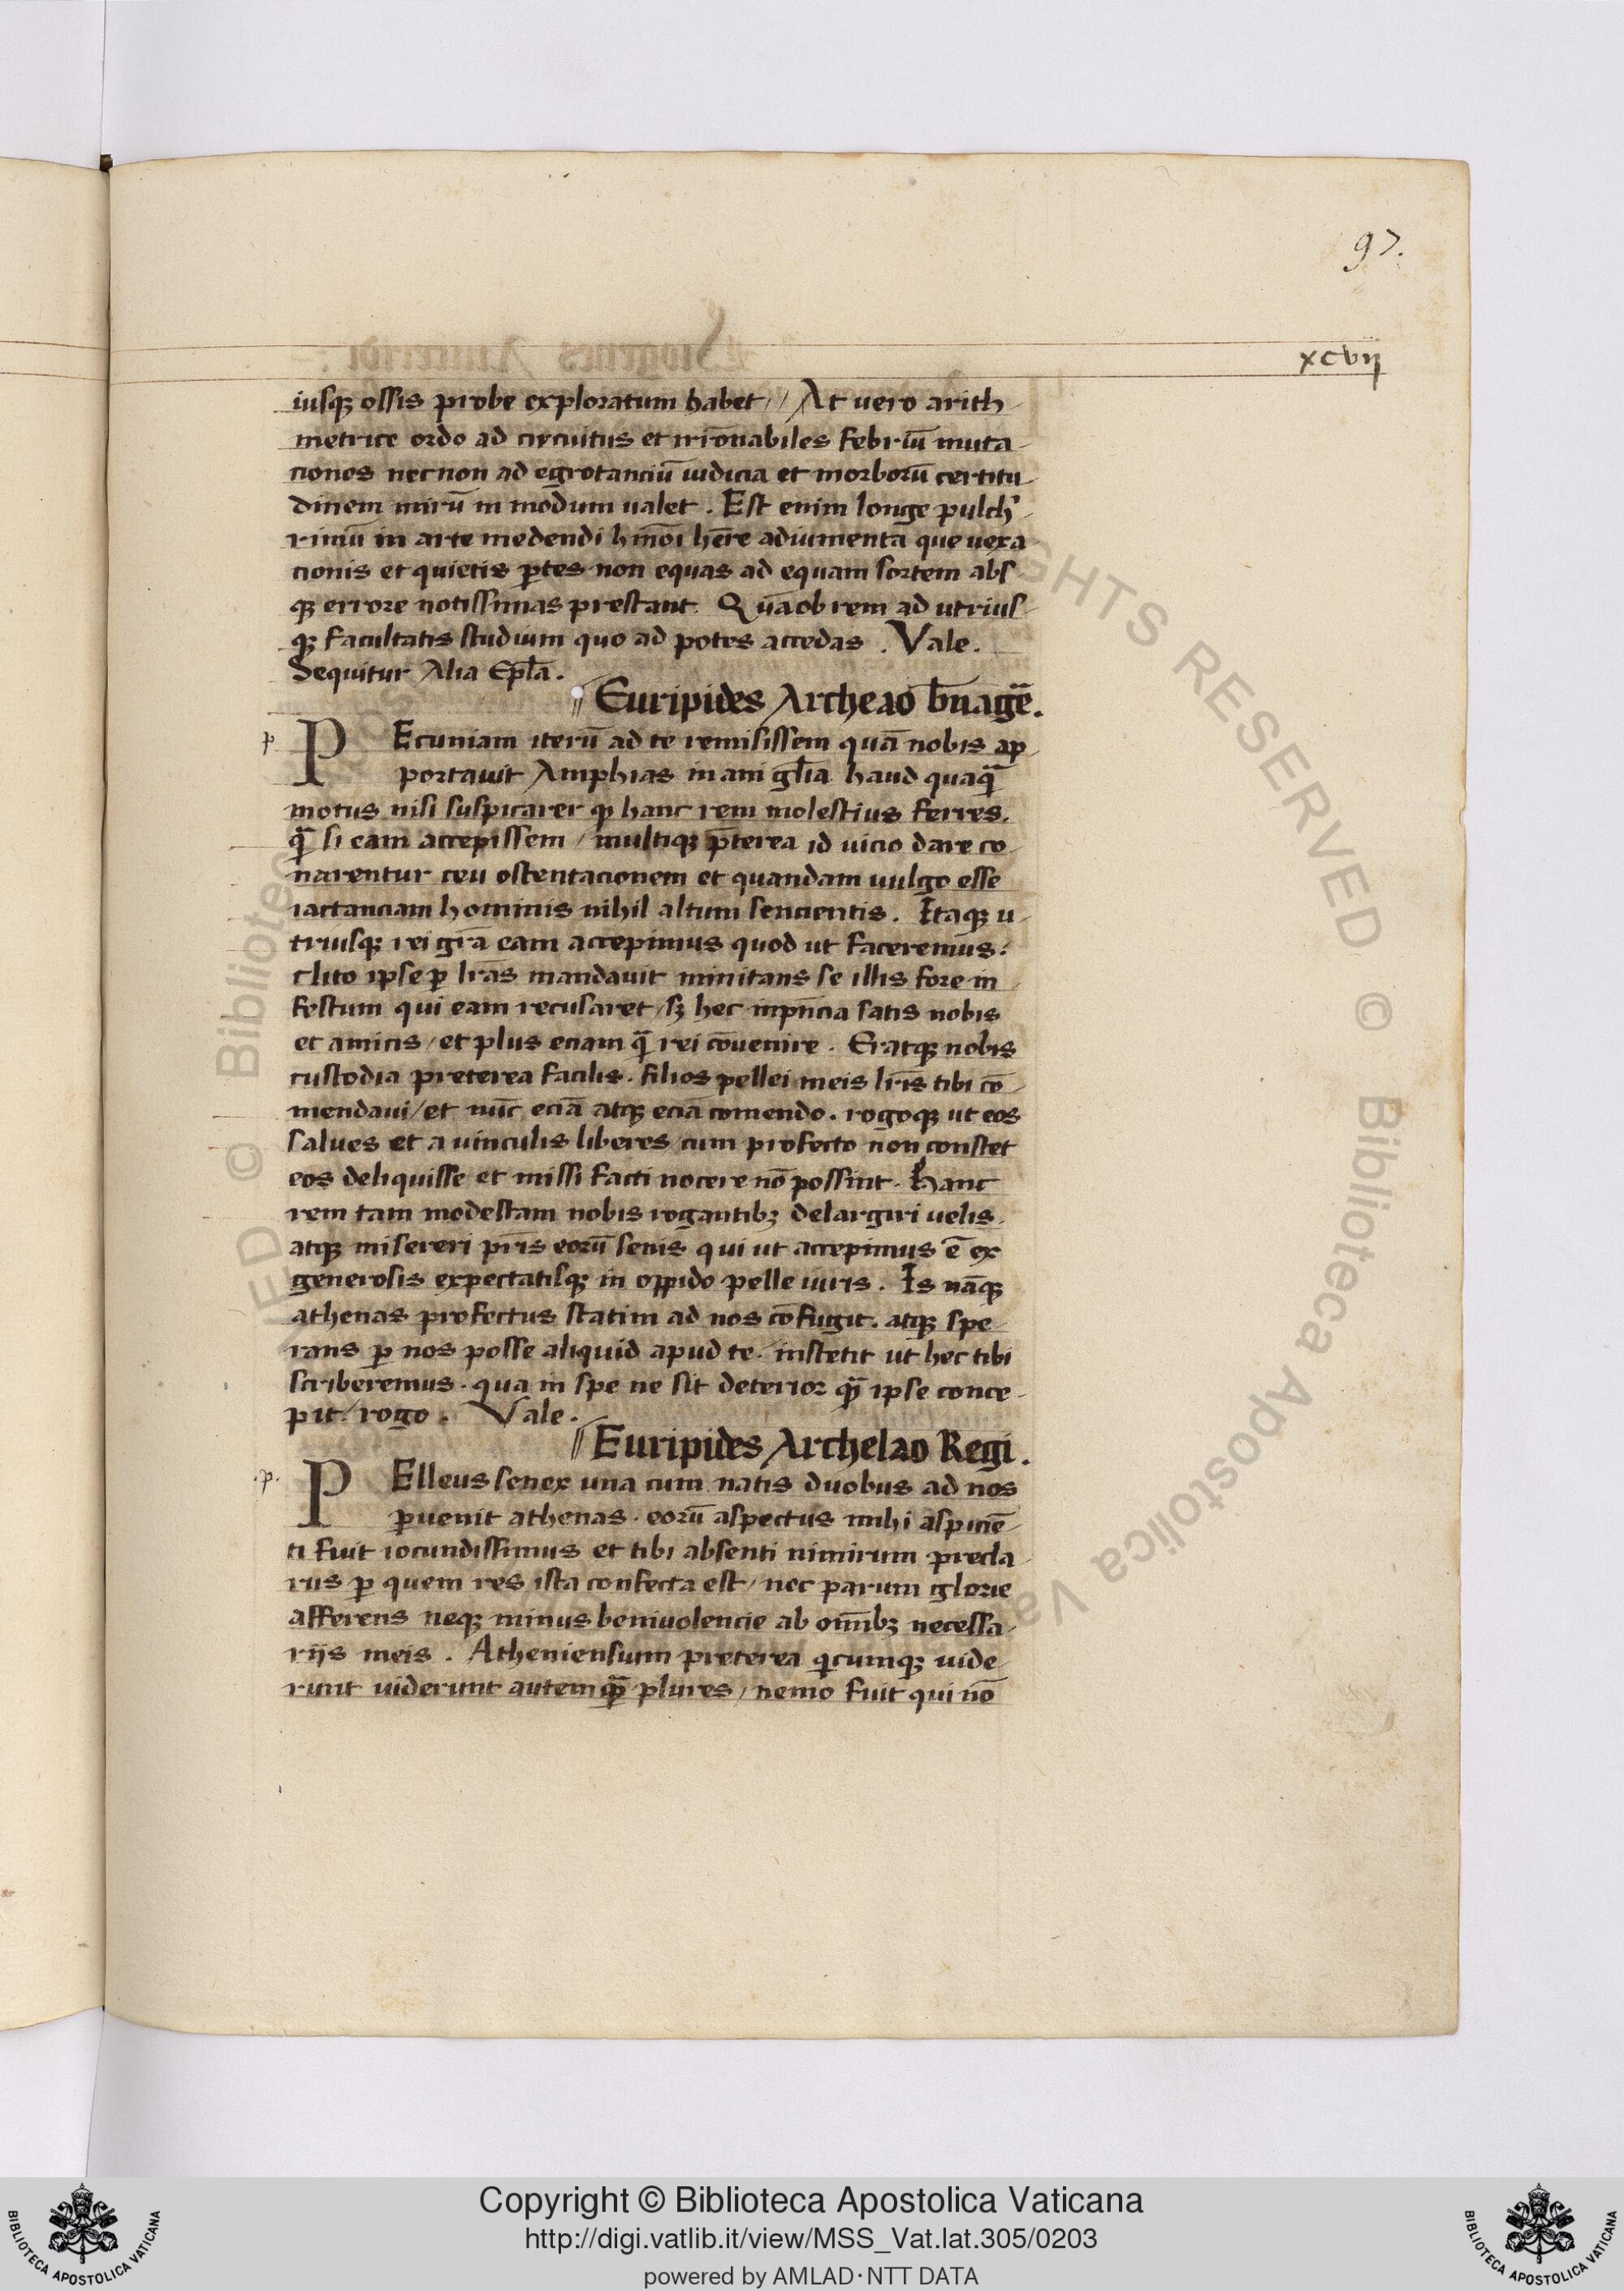 97.
xcvij
iusqꝫ ossis probe exploratum habet // At uero arith-
metrice ordo ad circuitus et irrōnabiles febriū muta-
ciones necnon ad egrotanciū iudicia et morborū certitu-
dinem mirū in modum ualet . Est enim longe pulch'-
rimū in arte medendi hmōi hēre adiumenta que uexa-
cionis et quietis ꝑtes non equas ad equam sortem abs-
qꝫ errore notissimas prestant. Quāobrem ad utrius-
qꝫ facultatis studium quo ad potes accedas . Vale .
Sequitur Alia Epl̄a .
Euripides Archeao b̄n agē .
p
PEcuniam iterū ad te remisissem quā nobis ap-
portauit Amphias inani gl̄ia haud quaqᷓ
motus nisi suspicarer ꝙ hanc rem molestius ferres .
qᷓ si eam accepissem / multiqꝫ p̄terea id uicio dare co-
narentur ceu ostentacionem et quandam uulgo esse
iactanciam hominis nihil altum sencientis . Itaqꝫ u-
triusqꝫ rei gr̄a eam accepimus quod ut faceremus :
clito ipse ꝑ lr̄as mandauit minitans se illis fore in-
festum qui eam recusaret / sꝫ hec inpn̄cia satis nobis
et amicis / et plus eciam qᷓ rei cōuenire . Eratqꝫ nobis
custodia preterea facilis . filios pellei meis lr̄is tibi cō-
mendaui / et nūc eciā atqꝫ eciā comendo . rogoqꝫ ut eos
salues et a uinculis liberes / cum profecto non constet
eos deliquisse et missi facti nocere nō possint . Hanc
rem tam modestam nobis rogantibꝫ delargiri uelis .
atqꝫ misereri pr̄is eorū senis qui ut accepimus ē ex
generosis expectatisqꝫ in oppido pelle uiris . Is nāqꝫ
athenas profectus statim ad nos cōfugit . atqꝫ spe-
rans ꝑ nos posse aliquid apud te / institit ut hec tibi
scriberemus . qua in spe ne sit deterior qᷓ ipse conce-
pit / rogo . Vale .
Euripides Archelao Regi .
.p.
PElleus senex una cum natis duobus ad nos
ꝑuenit athenas . eorū aspectus mihi aspiciē-
ti fuit iocundissimus et tibi absenti nimirum precla-
rus ꝑ quem res ista confecta est / nec parum glorie
afferens neqꝫ minus beniuolencie ab om̄ibꝫ necessa-
rijs meis . Atheniensium preterea qicumqꝫ uide-
runt uiderunt autem qᷓ plures / nemo fuit qui nō
Copyright © Biblioteca Apostolica Vaticana
http://digi.vatlib.it/view/MSS_Vat.lat.305/0203
powered by AMLAD·NTT DATA